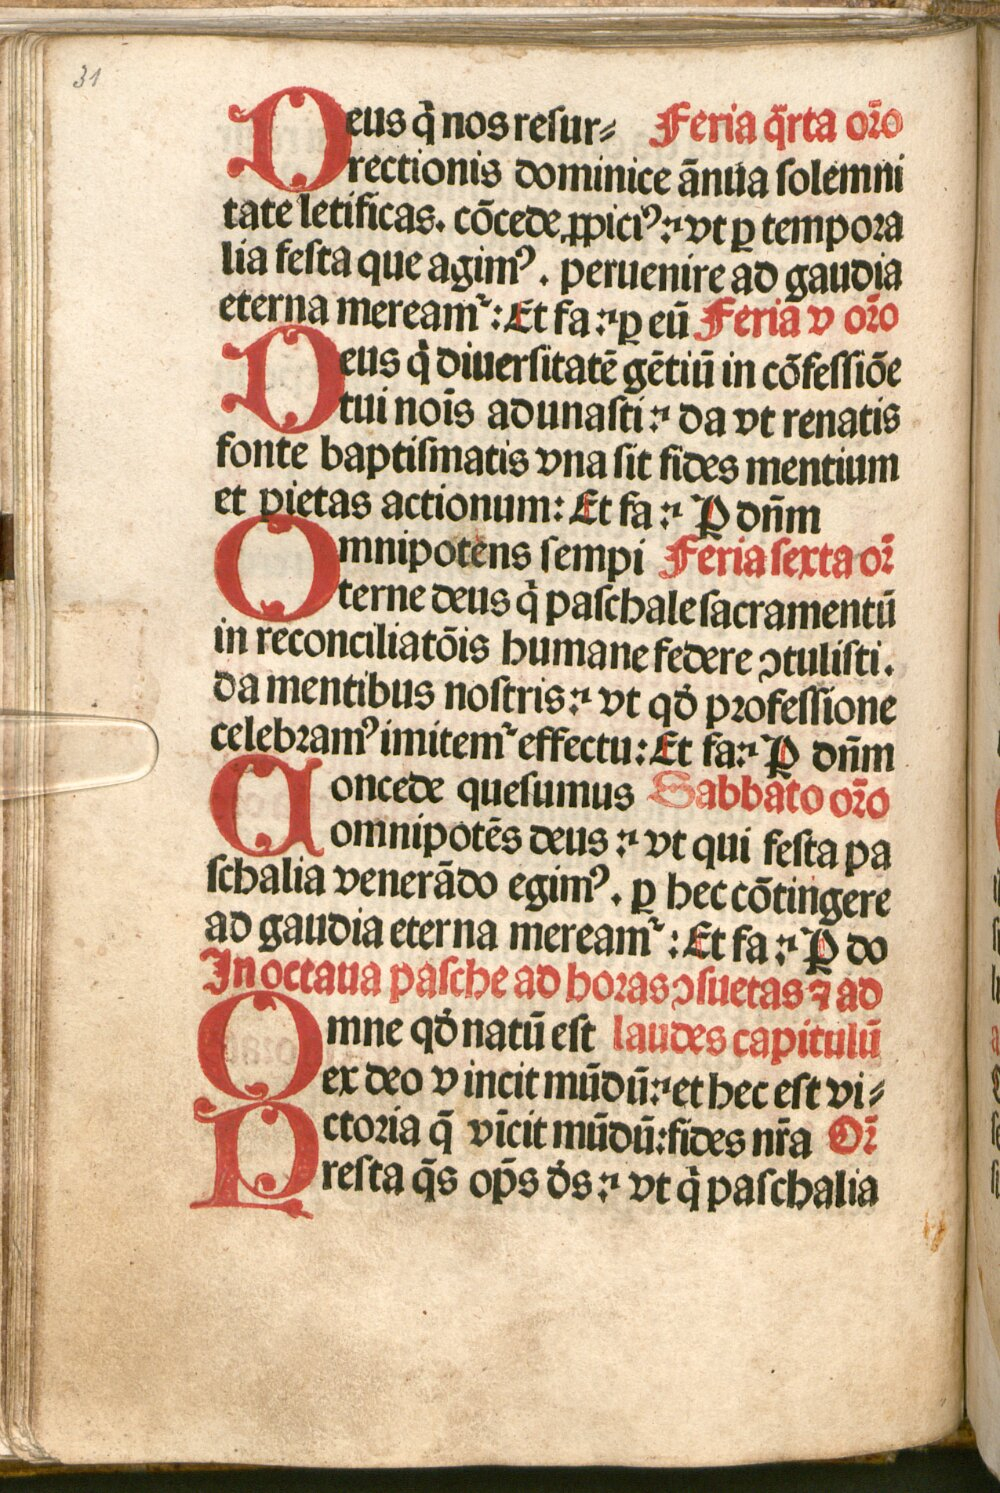 31
Deus q̄ nos resur⸗ Feria q̄rta or̄o
rectionis dominice ān̄ua solemni
tate letificas. cōcede ꝓpiciꝰ: vt ꝑ tempora
lia festa que agimꝰ. peruenire ad gaudia
eterna mereamᷣ: Et fa: ꝑ eū Feria v or̄o
Deus q̄ diuersitatē gētiū in cōfessiōe
tui noīs adunasti: da vt renatis
fonte baptismatis vna sit fides mentium
et pietas actionum: Et fa: P̲ dn̄m
Omnipotens sempi Feria sexta or̄
terne deus q̄ paschale sacramentū
in reconciliatōis humane federe ꝯtulisti.
da mentibus nostris: vt qd̄ professione
celebramꝰ imitemᷣ effectu: Et fa: P̲ dn̄m
Concede quesumus Sabbato or̄o
omnipotēs deus: vt qui festa pa
schalia venerādo egimꝰ. ꝑ hec cōtingere
ad gaudia eterna mereamᷣ: Et fa: P̲ do
In octaua pasche ad horas ꝯsuetas ⁊ ad
Omne qd̄ natū est laudes capitulū
ex deo vincit mūdū: et hec est vi⸗
ctoria q̄ vīcit mūdū: fides nr̄a Or̄
Presta q̄s op̄s ds̄: vt q̄ paschalia